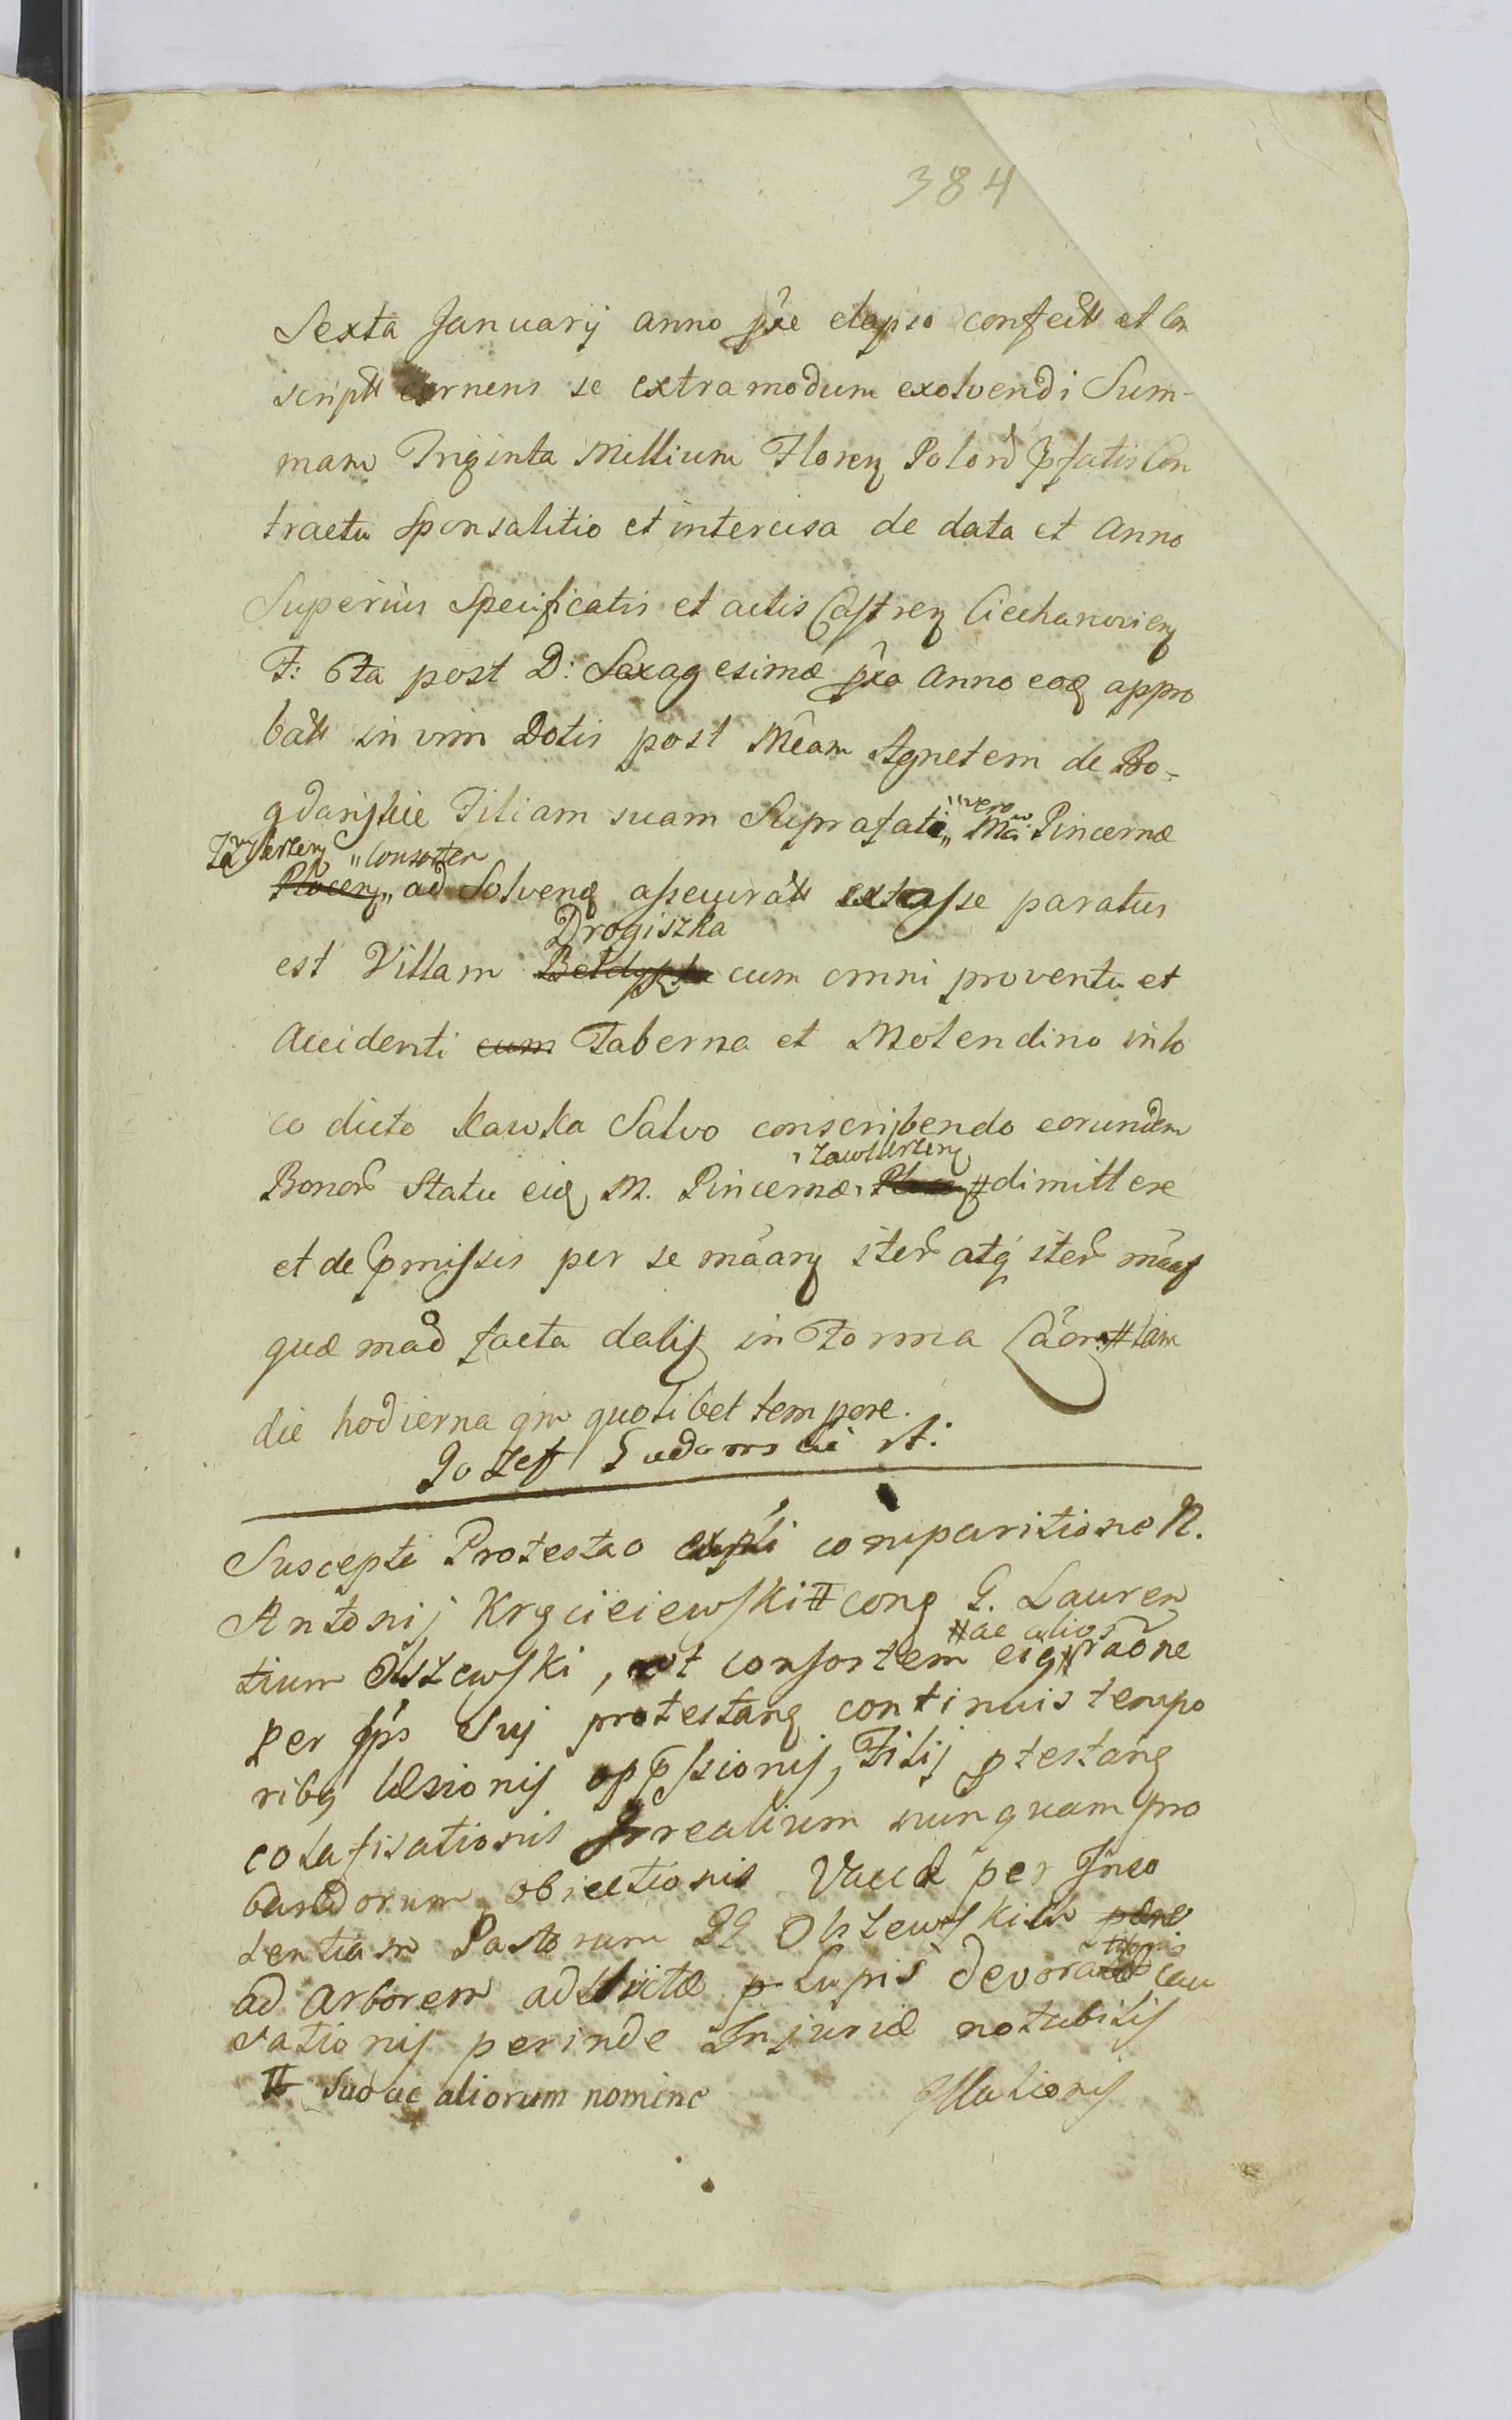 384
Sexta Januarij anno pxe elapso confect et Con
script cernens se extra modum exolvendi Sum-
mam Triginta Millium Floren Polon pfatis Con
tractu Sponsalitio et intercisa de data et Anno
Superius Specificatis et actis Castren Ciechanovien
F: 6ta post D: Sexagesimæ pxa Anno eoq appro
bat in vim Dotis post Mcam Agnetem de Bo-
gdańskie Filiam suam Suprafati „vero Mci Pincernæ
Zawskrzen „Consorten
Plocen„ ad Solvend assecurat extasse paratus
Drogiszka
est Villam cum omni proventu et
Accidenti cum Taberna et Molendino in lo
co dicto Kawka Salvo conscribendo eorundem
Zawskrzen
Bonor Statu eiq M. Pincernæ, # dimittere
et de pmissis per se māan iter atq iter māaf
quæ mad facta dalif in Forma Cāor # tam
die hodierna qm quolibet tempore.
Jozeff Sudawski st:
Suscepti Protestao expti comparitione N.
Antonij Krzciciewski # cong G. Lauren
# ac alios
tium Olszewski, et consortem eiq # rāone
per Ips Suj protestanq continuis tempo
ribq læsionis oppssionis, Filij ptestanq
colafisationis Irrealium nunquam pro
bandorum obiectionis Vaccæ per Inso
lentiam Pastorum GG Olszewskich pene
ad arborem adstrictæ p Lupis devorationis cau
sationis perinde Injuriæ notabilis
# Suo ac aliorum nomine Illationis